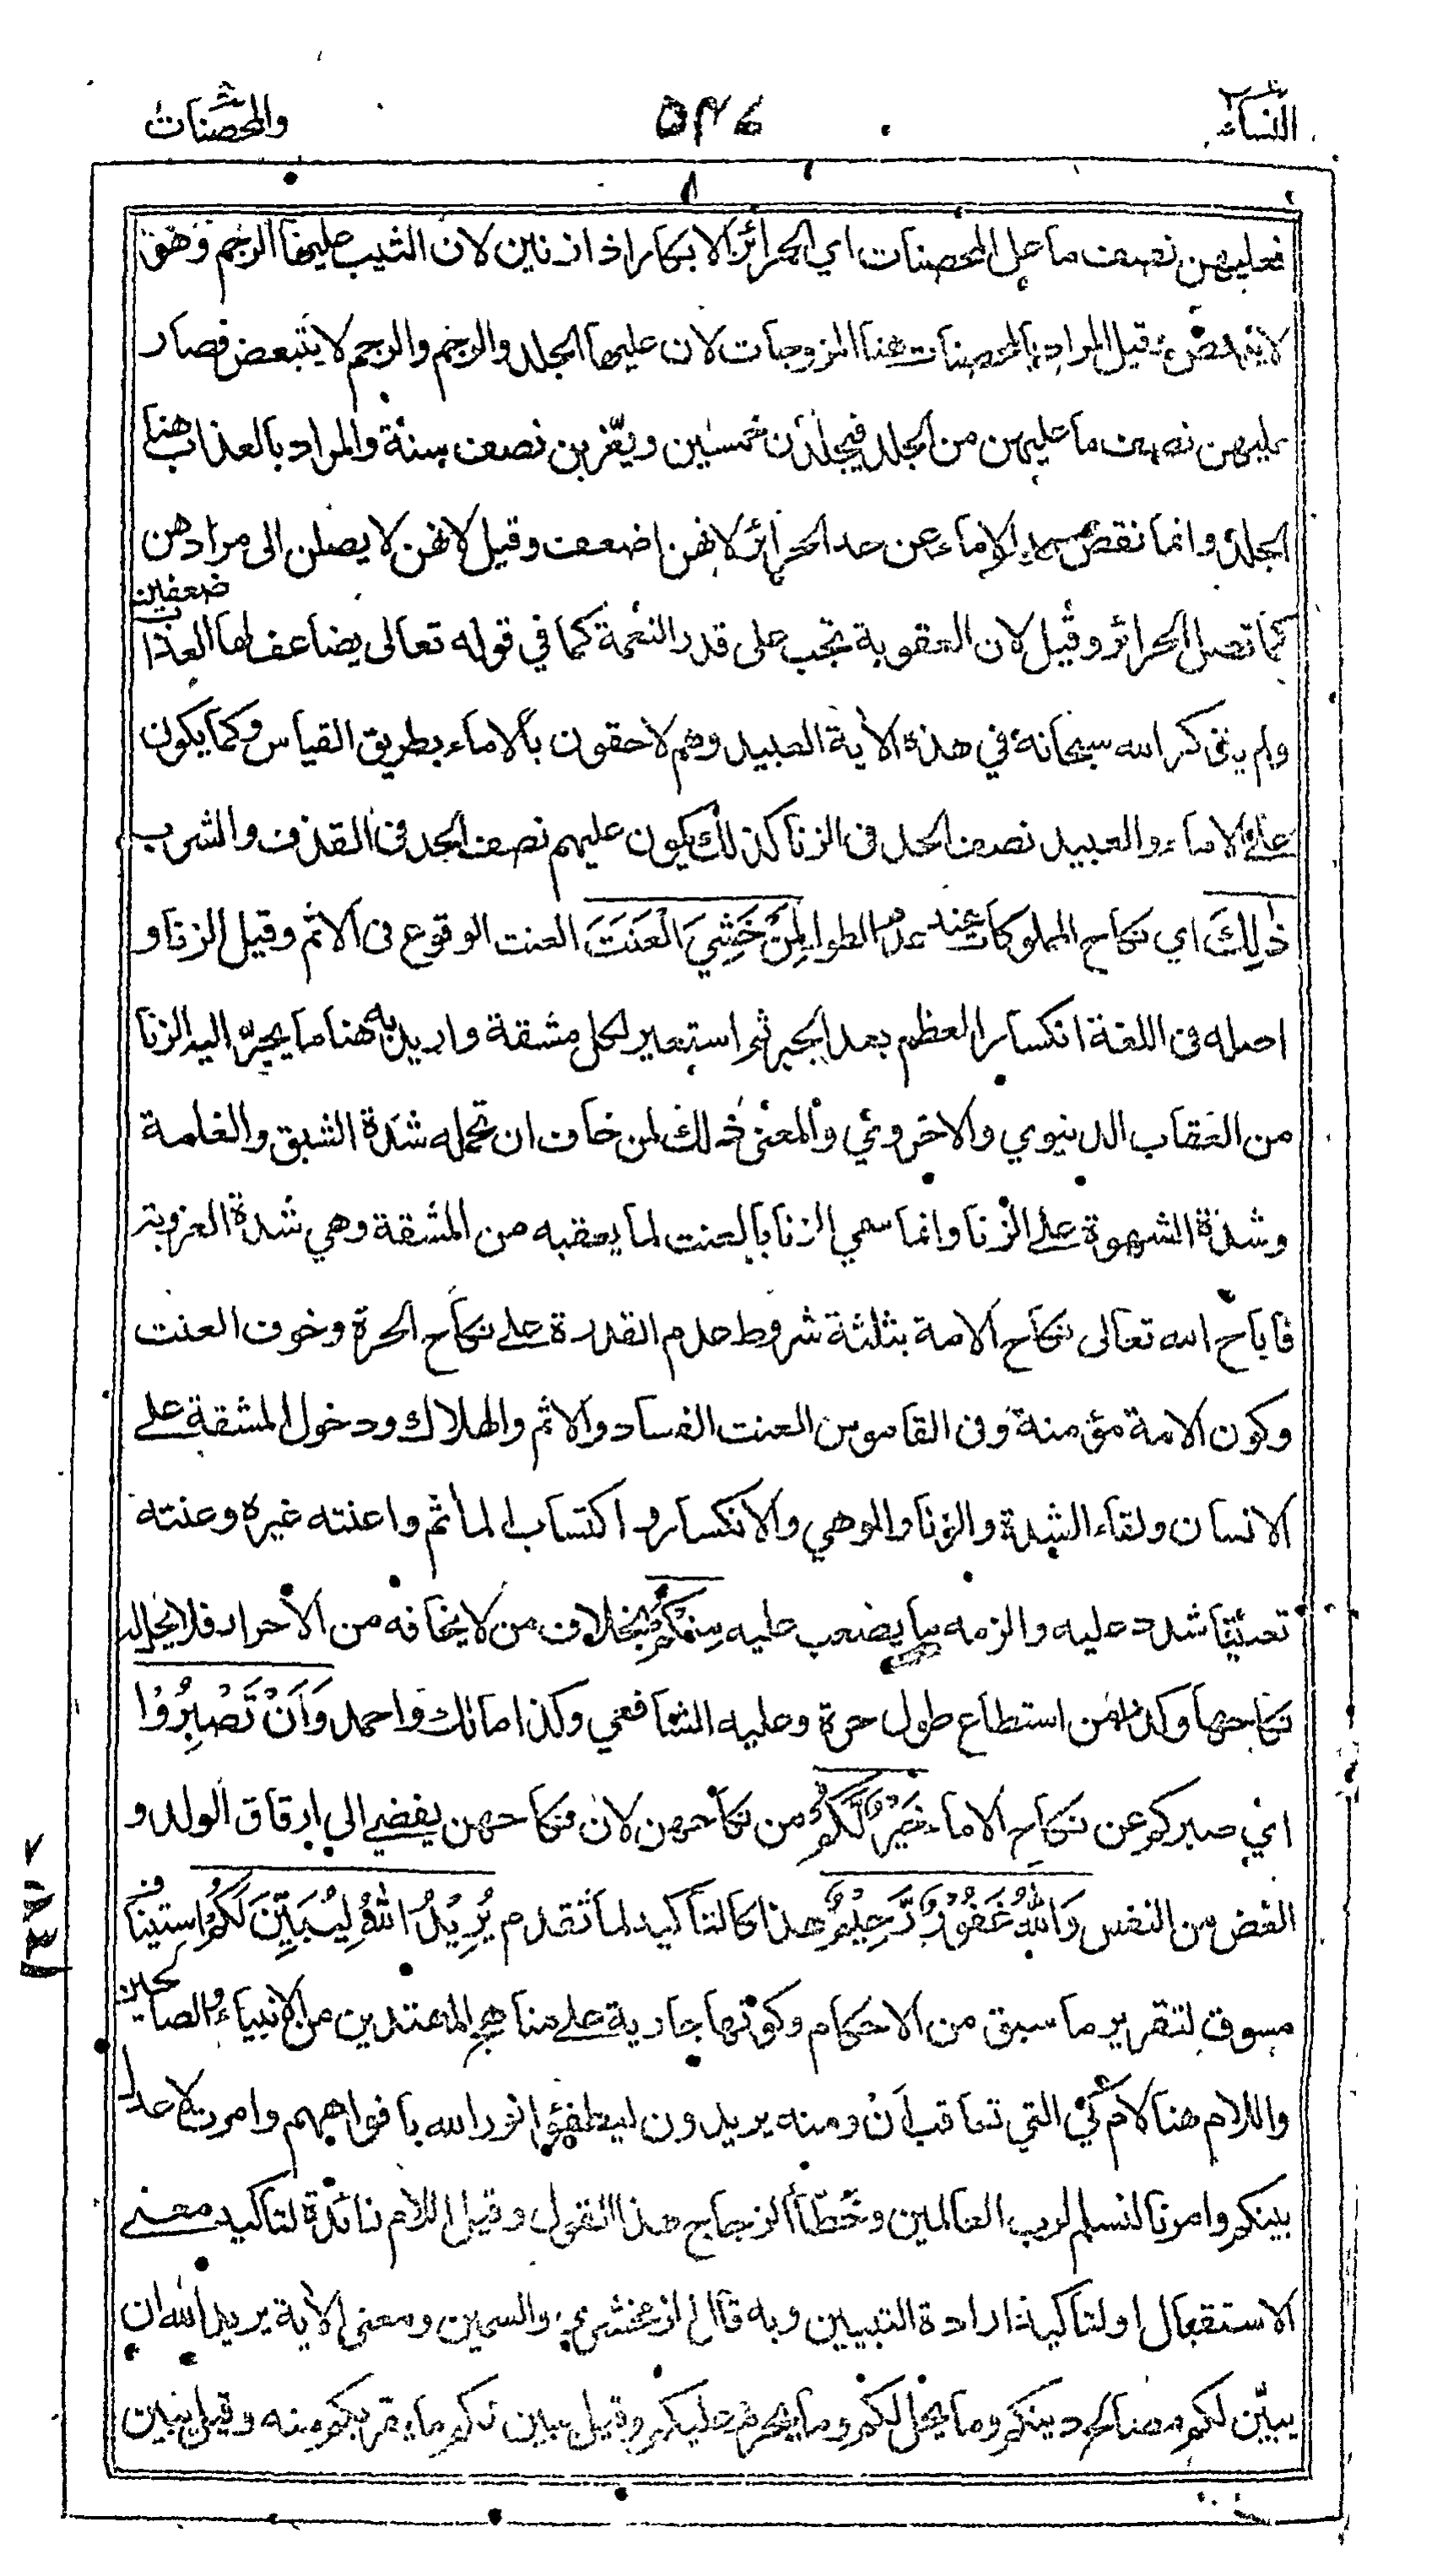 النساء ٥٣٤ والمحصنات
فعليهن نصف ما على المحصنات اي الحرائر الابكار اذا زنين لان الثيب عليها الرجم وهو
لا يتبعض وقيل المراد بالمحصنات هنا المزوجات لان عليها الجلد والرجم والرجم لا يتبعض فصار
عليهن نصف ما عليهن من الجلد فيجلدن خمسين ويغربن نصف سنة والمراد بالعذاب هنا
الجلد وانما نقص حد الاماء عن حد الحرائر لانهن اضعف وقيل لانهن لا يصلن الى مرادهن
كما تصل الحرائر وقيل لان العقوبة تجب على قدر النعمة كما في قوله تعالى يضاعف لها العذاب ضعفين
ولم يذكر الله سبحانه في هذه الآية العبيد وهم لاحقون بالاماء بطريق القياس وكما يكون
على الاماء والعبيد نصف الحد في الزنا كذلك يكون عليهم نصف الحد في القذف والشرب
ذٰلِكَ اي نكاح المملوكات عند عدم الطول لِمَنْ خَشِيَ الْعَنَتَ العنت الوقوع في الاثم وقيل الزنا و
اصله في اللغة انكسار العظم بعد الجبر ثم استعير لكل مشقة واريد به هنا ما يجر اليه الزنا
من العقاب الدنيوي والاخروي والمعنى ذلك لمن خاف ان تحمله شدة الشبق والغلمة
وشدة الشهوة على الزنا وانما سمي الزنا بالعنت لما يعقبه من المشقة وهي شدة العزوبة
فاباح الله تعالى نكاح الامة بثلثة شروط عدم القدرة على نكاح الحرة وخوف العنت
وكون الامة مؤمنة وفي القاموس العنت الفساد والاثم والهلاك ودخول المشقة على
الانسان ولقاء الشدة والزنا والوهي والانكسار و اكتساب المأثم واعنته غيره وعنته
تعنيتا شدد عليه والزمه ما يصعب عليه مِنْكُمْ بخلاف من لا يخافه من الاحرار فلا يحل له
نكاحها وكذا من استطاع طول حرة وعليه الشافعي وكذا مالك واحمد وَاَنْ تَصْبِرُوْا
اي صبركم عن نكاح الاماء خَيْرٌ لَّكُمْ من نكاحهن لان نكاحهن يفضي الى ارقاق الولد و
الغض من النفس وَاللّٰهُ غَفُوْرٌ رَّحِيْمٌ هذا كالتأكيد لما تقدم يُرِيْدُ اللّٰهُ لِيُبَيِّنَ لَكُمْ استيناف
مسوق لتقرير ما سبق من الاحكام وكونها جارية على مناهج المهتدين من الانبياء والصالحين
واللام هنا لام كي التي تعاقب ان ومنه يريدون ليطفؤا نور الله بافواههم وامرت لاعدل
بينكم وامرنا لنسلم لرب العالمين وخطّأ الزجاج هذا القول وقيل اللام زائدة لتأكيد معنى
الاستقبال او لتأكيد ارادة التبيين وبه قال الزمخشري والسمين ومعنى الآية يريد الله ان
يبيّن لكم مصالح دينكم وما يحل لكم وما يحرم عليكم وقيل يبين لكم ما يقربكم منه وقيل يبين